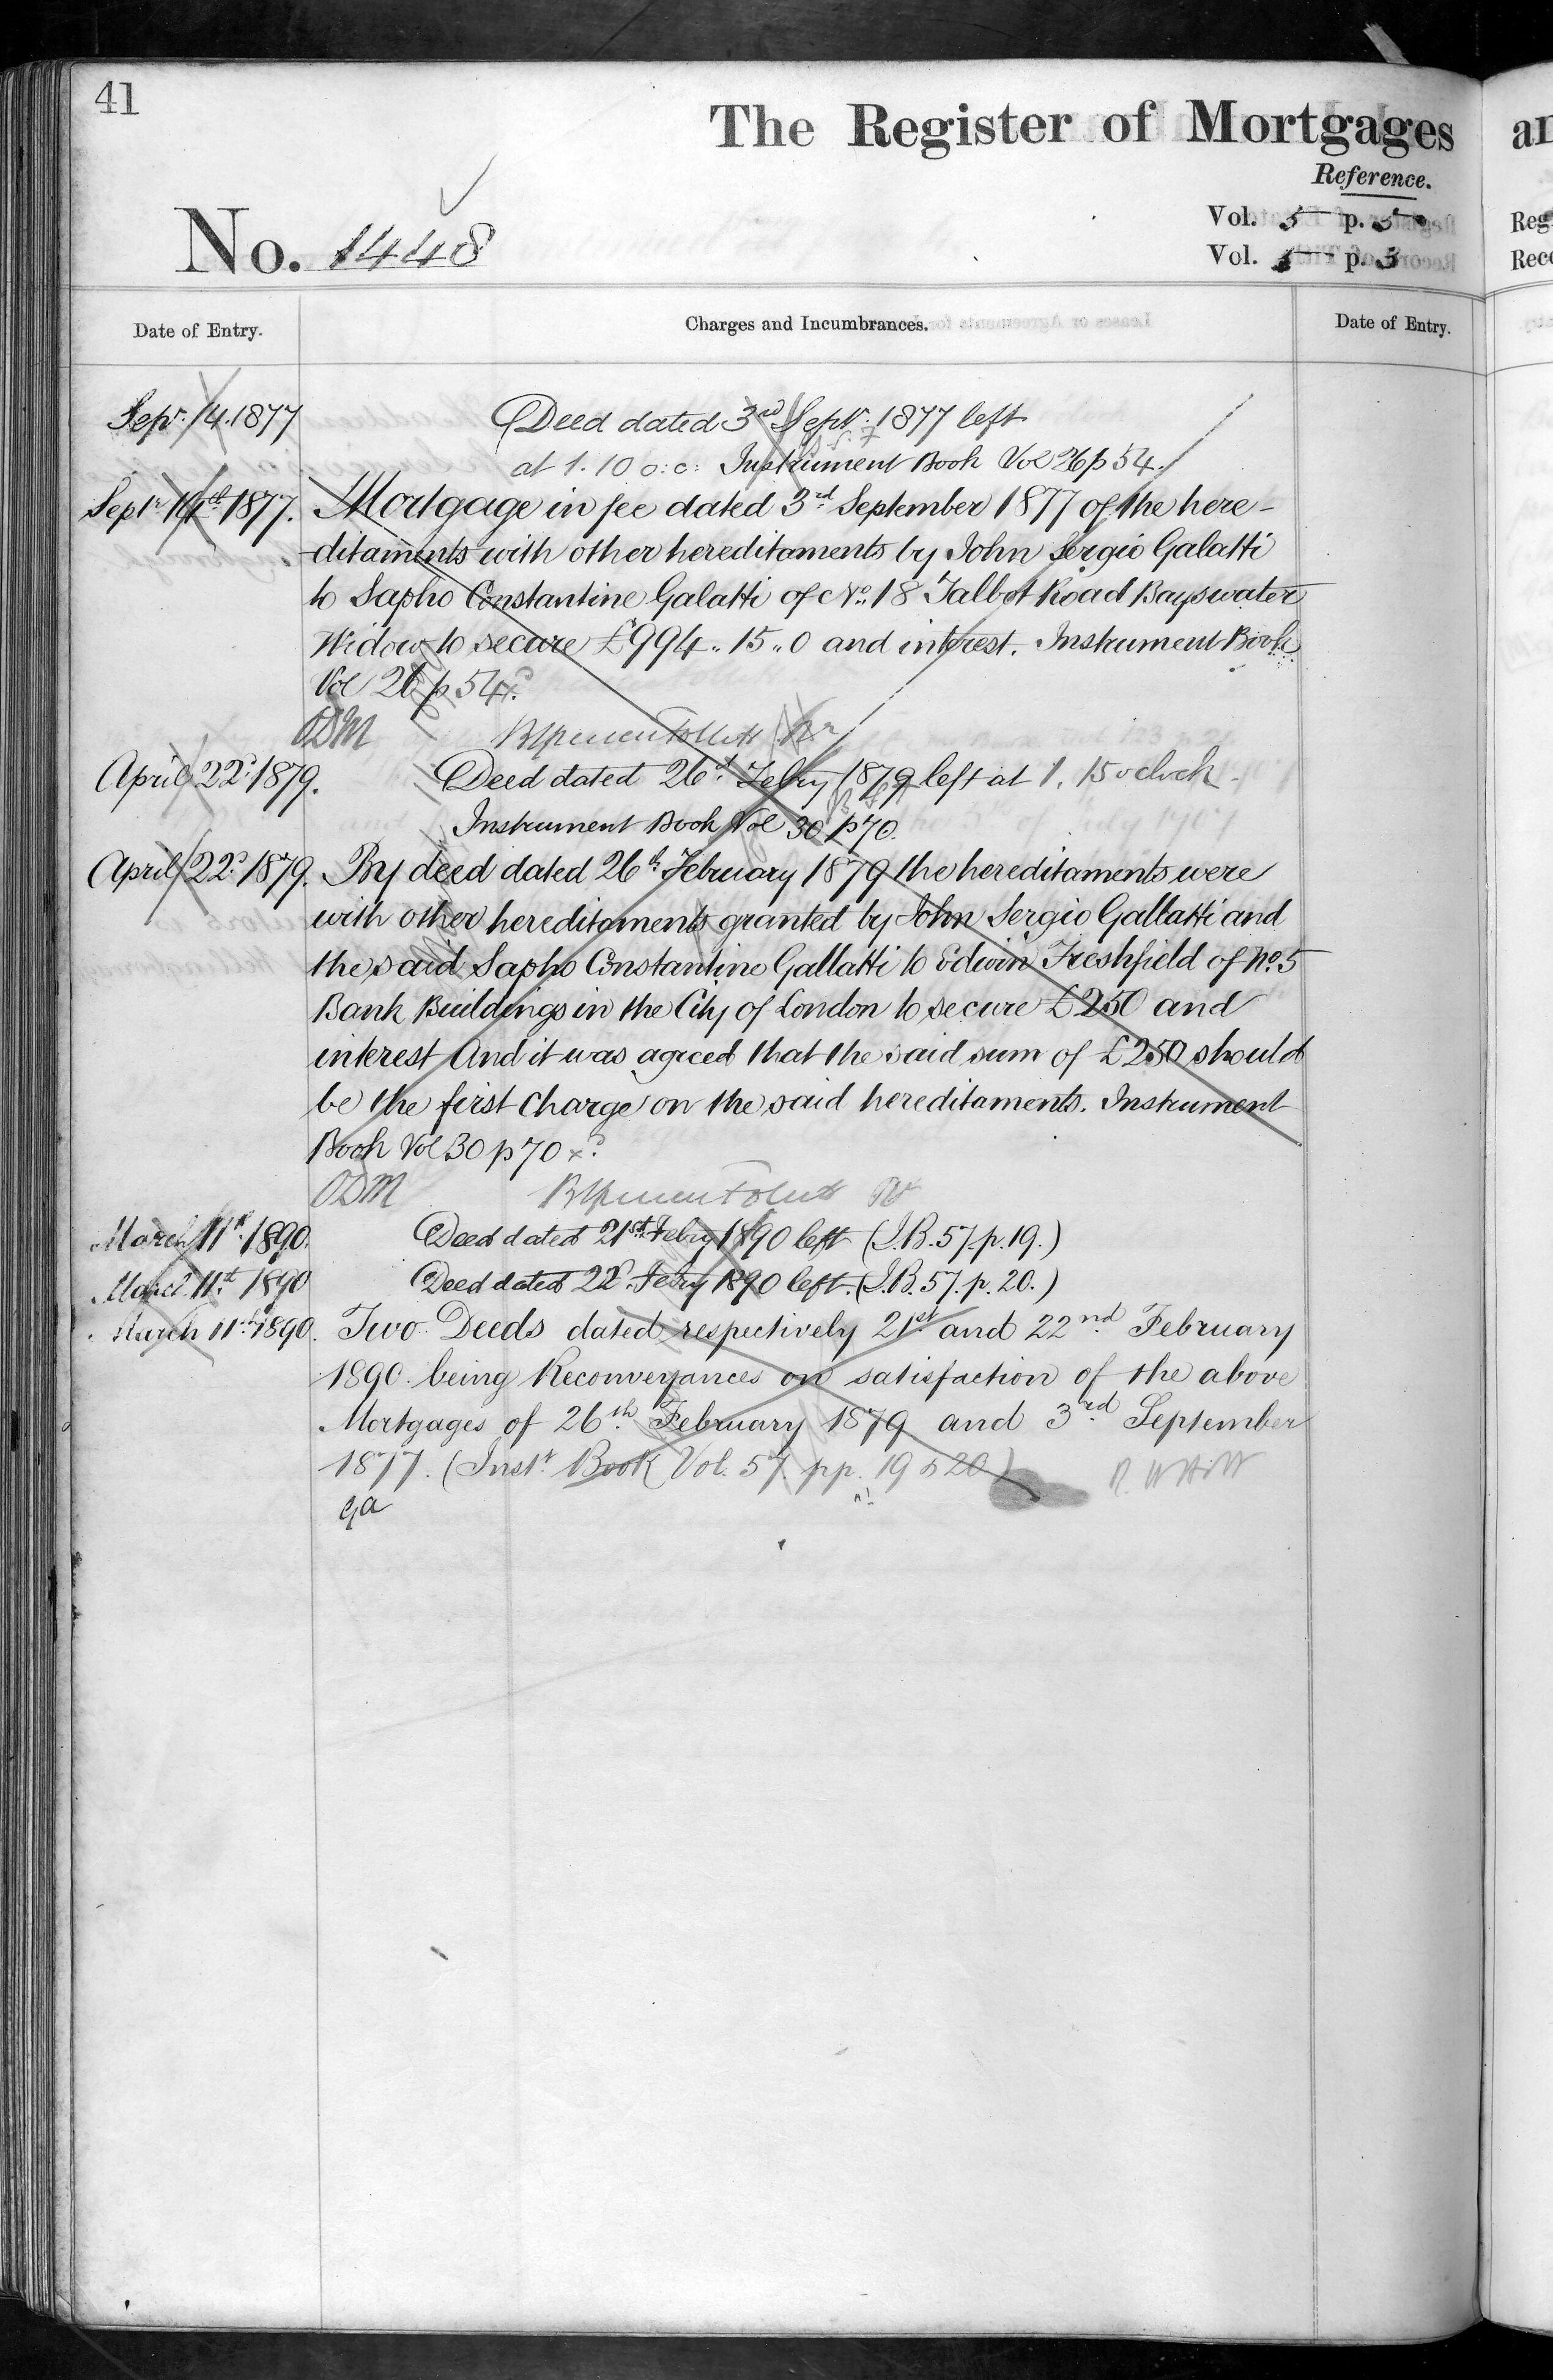 41
The Register of Mortgages
Reference.
Vol. 5 p. 5
Vol. 1 p. 5
No. 1448
Date of Entry.
Charges and Incumbrances.
Date of Entry.
Sepr. 14. 1877
Deed dated 3rd Septr. 1877 left
at 1.10 o:c: Instrument Book Vol 26 p 54.
Septr 14th 1877.
Mortgage in fee dated 3rd September 1877 of the here-
ditaments with other hereditaments by John Sergio Galatti
to Sapho Constantine Galatti of No. 18 Talbot Road Bayswater
Widow to secure £994..15..0 and interest. Instrument Book
Vol 26 p 54 x.
ODM
April 22d. 1879.
Deed dated 26th Febry 1879 left at 1.15 oclock
Instrument Book Vol 30 p 70.
April 22d. 1879.
By deed dated 26th February 1879 the hereditaments were
with other hereditaments granted by John Sergio Gallatti and
the said Sapho Constantine Gallatti to Edwin Freshfield of No. 5
Bank Buildings in the City of London to secure £250 and
interest And it was agreed that the said sum of £250 should
be the first charge on the said hereditaments. Instrument
Book Vol 30 p 70 x.
ODM
March 11th. 1890.
Deed dated 21st. Febry 1890 left (I.B. 57. p. 19.)
March 11th. 1890
Deed dated 22d. Febry 1890 left. (I.B. 57. p. 20.)
March 11th 1890.
Two Deeds dated respectively 21st. and 22nd. February
1890 being Reconveyances on satisfaction of the above
Mortgages of 26th. February 1879 and 3rd. September
1877. (Inst. Book Vol. 57. pp. 19 & 20)
ga
ar
Reg
Reco